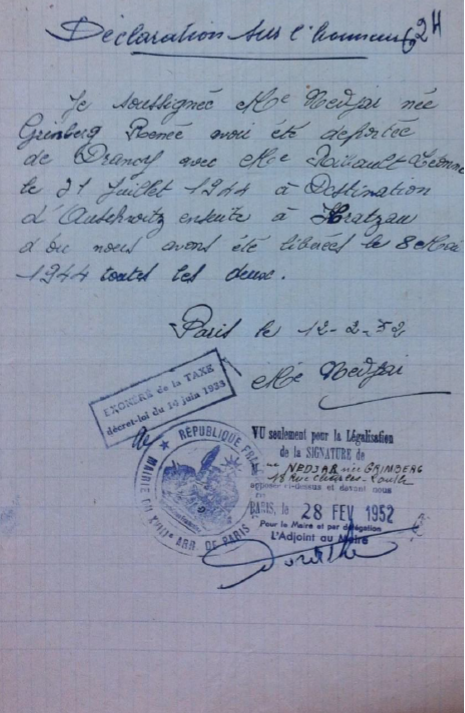 Déclaration sur l'honneur
24
Je soussignée Me Nedjar née
Grinberg Renée avoir été deportée
de Drancy avec Me
le 31 Juillet 1944 à Destination
d'Auschwitz ensuite à Kratzau
d'ou nous avons été libérées le 8 Mai
1944 toutes les deux.
Paris le 12-2-52
Me Nedjar
EXONÉRÉ de la TAXE
décret-loi du 14 juin 1938
MAIRIE DU XVIIIe ARR. DE PARIS
REPUBLIQUE FRA
VU seulement pour la Légalisation
de la SIGNATURE de
Mme NEDJAR née GRINBERG
18 Rue
apposée ci-dessus et devant nous
PARIS, le 28 FEV 1952
Pour le Maire et par délégation
L'Adjoint au Maire